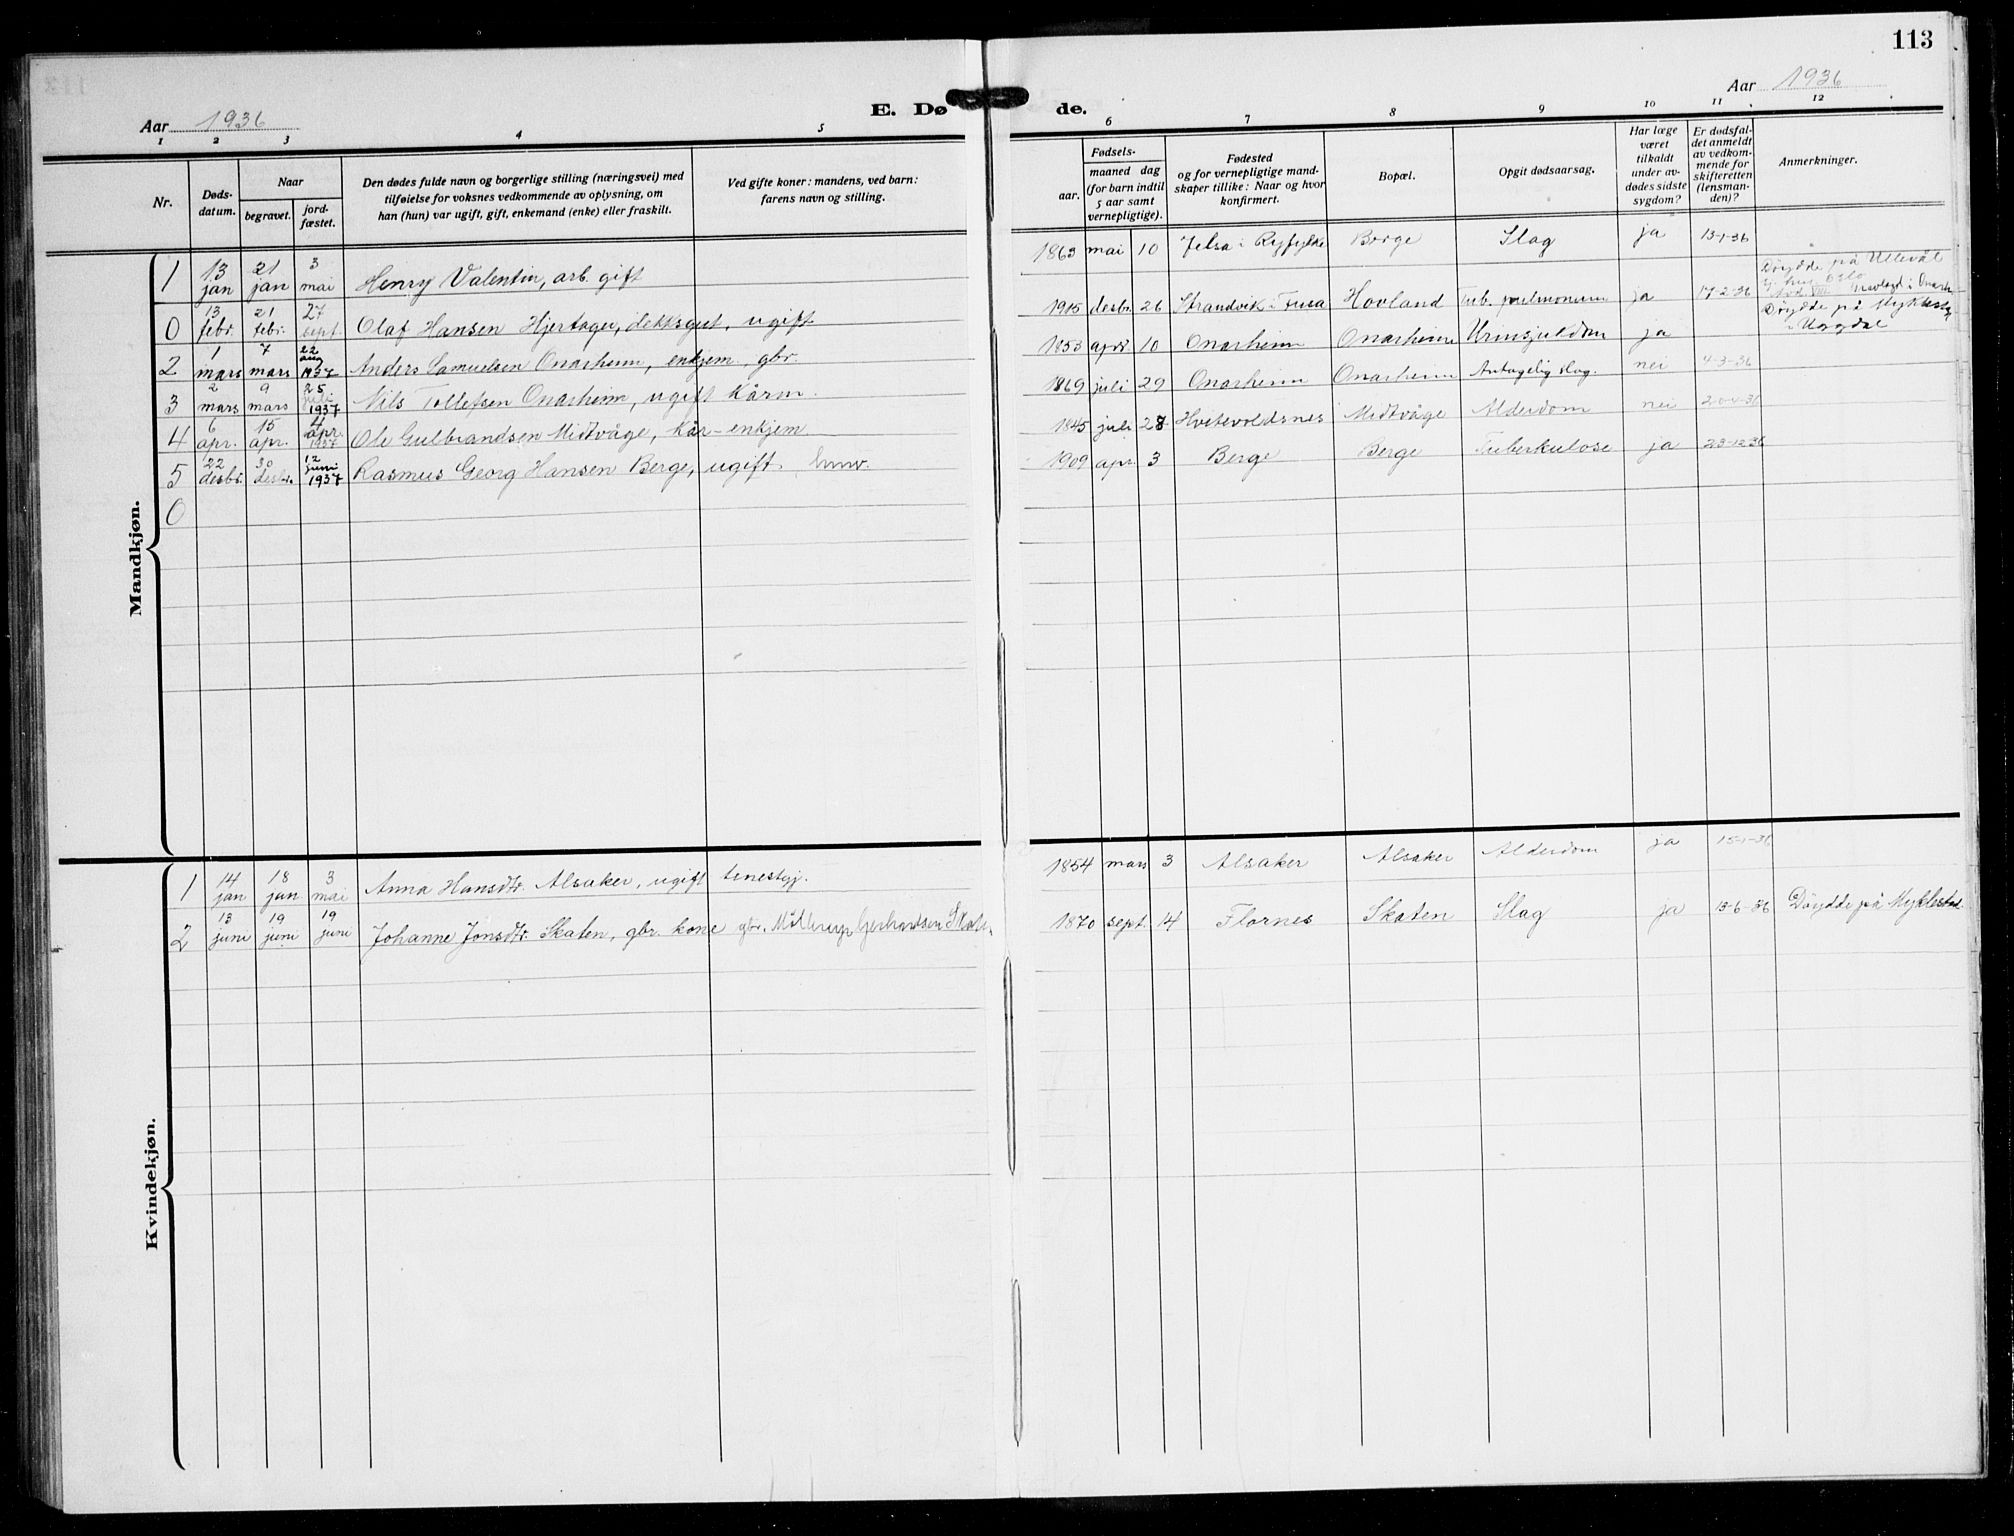 113
Aar 1936
E. Døde.
Aar 1936
1 2 3 4 5 6 7 8 9 10 11 12
Nr.
Døds-
datum.
Naar
begravet.
jord-
fæstet.
Den dødes fulde navn og borgerlige stilling (næringsvei) med
tilføielse for voksnes vedkommende av oplysning, om
han (hun) var ugift, gift, enkemand (enke) eller fraskilt.
Ved gifte koner: mandens, ved barn:
farens navn og stilling.
Fødsels-
aar.
maaned dag
(for barn indtil
5 aar samt
vernepligtige).
Fødested
og for vernepligtige mand-
skaper tillike: Naar og hvor
konfirmert.
Bopæl.
Opgit dødsaarsag.
Har læge
været
tilkaldt
under av-
dødes sidste
sygdom?
Er dødsfal-
det anmeldt
av vedkom-
mende for
skifteretten
(lensman-
den)?
Anmerkninger.
Mandkjøn.
1 13 jan 21 jan 3 mai Henry Valentin, arb. gift 1863 mai 10 Jelsa i Ryfylke Berge Slag ja 13-1-36
0 13 febr. 21 febr. 27 sept. Olaf Hansen Hjertager, dekksgut, ugift 1905 desbr. 26 Strandvik i Fusa Hovland Tub. pulmonum ja 17-2-36 Døydde på Ullevål
2 1 mars 7 mars 22 aug 1937 Anders Samuelsen Onarheim, enkjem. gbr. 1853 apr. 10 Onarheim Onarheim Urinsjukdom ja Døydde på Myklestad
i Uggdal
3 2 mars 9 mars 25 juli 1937 Nils Tollefsen Onarheim, ugift Kårm. 1869 juli 29 Onarheim Onarheim Antagelig slag. nei 4-3-36
4 6 apr. 15 apr. 4 apr. 1937 Ole Gulbrandsen Midtvåge, Kår-enkjem. 1845 juli 28 Hvitevoldsnes Midtvåge Alderdom nei 20-4-36
5 22 desbr. 30 desbr. 12 juni 1937 Rasmus Georg Hansen Berge, ugift. 1909 apr. 3 Berge Berge Tuberkulose ja 23-12-36
0
Kvindekjøn.
1 14 jan 18 jan 3 mai Anna Hansdtr. Alsaker, ugift tenestgj. 1854 mars 3 Alsaker Alsaker Alderdom ja 15-1-36
2 13 juni 19 juni 19 juni Johanne Jonsdtr. Skaten, gbr. kone gbr. Gerhardsen Skaten 1870 sept. 14 Flornes Skaten Slag ja 13-6-36 Døydde på Myklestad